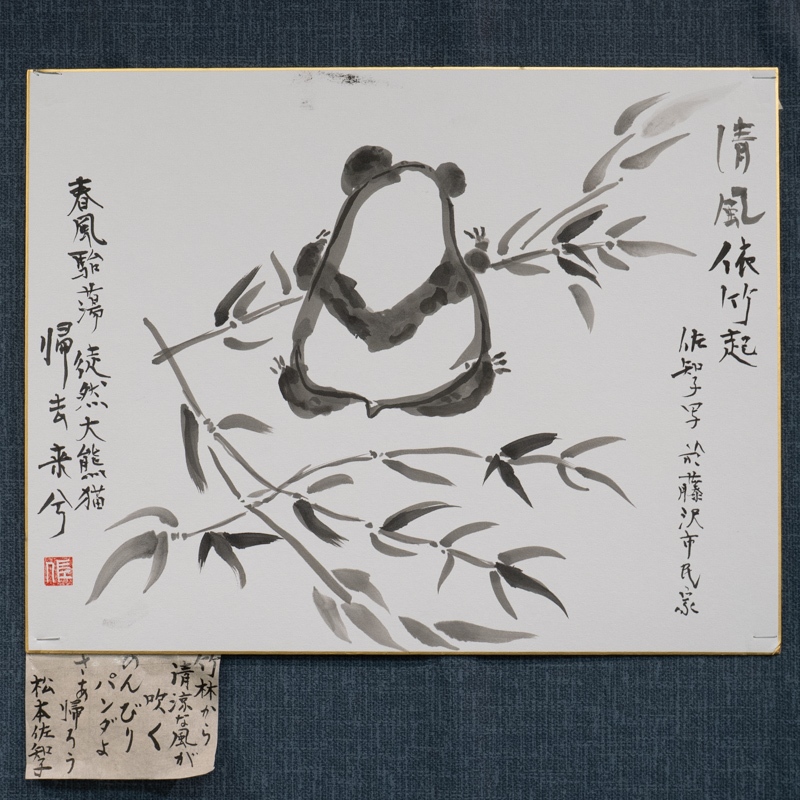 清風依竹起
佐知子写 於藤沢市民家
春風駘蕩 徒然大熊猫
帰去来兮
竹林から
清涼な風が
吹く
のんびり
パンダよ
さあ帰ろう
松本佐知子